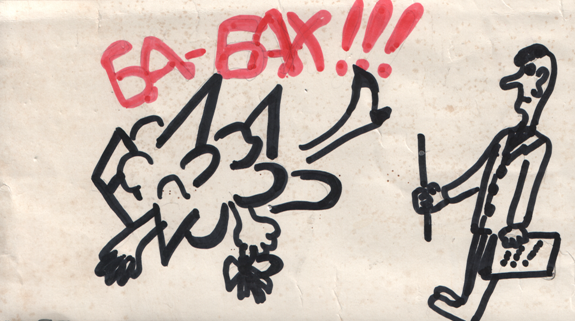 БА-БАХ!!!